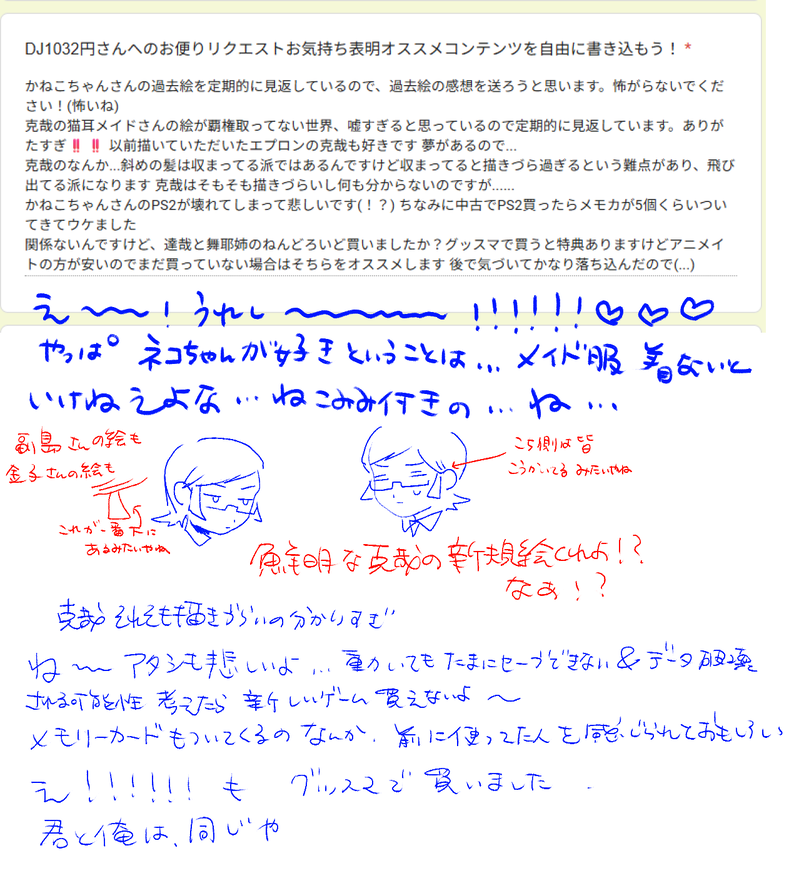 DJ1032円さんへのお便りリクエストお気持ち表明オススメコンテンツを自由に書き込もう！ *
かねこちゃんさんの過去絵を定期的に見返しているので、過去絵の感想を送ろうと思います。怖がらないでくだ
さい！(怖いね)
克哉の猫耳メイドさんの絵が覇権取ってない世界、嘘すぎると思っているので定期的に見返しています。ありが
たすぎ‼️ ‼️ 以前描いていただいたエプロンの克哉も好きです 夢があるので...
克哉のなんか...斜めの髪は収まってる派ではあるんですけど収まってると描きづら過ぎるという難点があり、飛び
出てる派になります 克哉はそもそも描きづらいし何も分からないのですが......
かねこちゃんさんのPS2が壊れてしまって悲しいです(！？) ちなみに中古でPS2買ったらメモカが5個くらいつい
てきてウケました
関係ないんですけど、達哉と舞耶姉のねんどろいど買いましたか？グッスマで買うと特典ありますけどアニメイ
トの方が安いのでまだ買っていない場合はそちらをオススメします 後で気づいてかなり落ち込んだので(...)
え〜〜！うれし〜〜〜〜！！！！！！♡♡♡
やっぱ ネコちゃんが好きということは... メイド服 着ないと
いけねえよな...ねこみみ付きの...ね...
副島さんの絵も
金子さんの絵も
これが一番下に
あるみたいやね
こち側は皆
こうかいてるみたいやね
鮮明な克哉の新規絵くれよ！？
なぁ！？
克哉それそも描きづらいの分かりすぎ
ね〜アタシも悲しいよ... 動かいてもたまにセーブできない&データ破壊
される可能性考えたら新しいゲーム買えないよ〜
メモリーカードもついてくるのなんか、前に使ってた人を感じられておもしろい
え！！！！！！も グッスマで買いました.
君と俺は、同じや